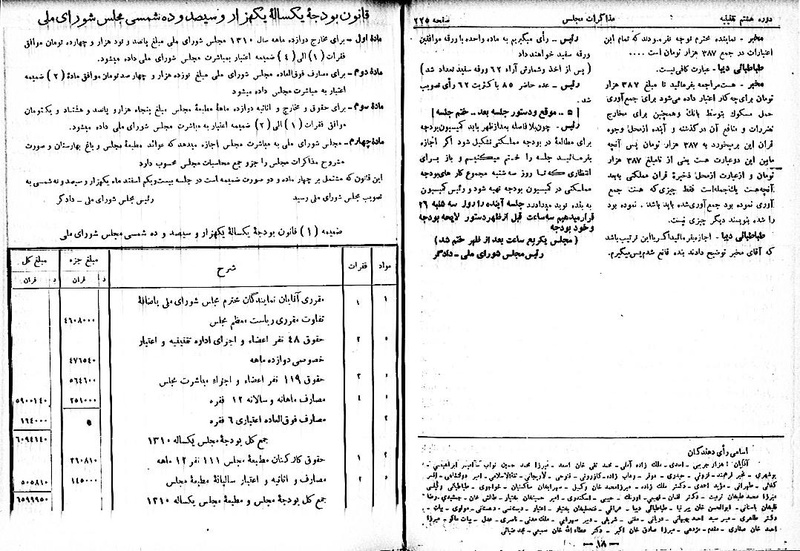 دوره هشتم تقنینیه
مذاکرات مجلس
صفحه ۲۲۵
مخبر - نماینده محترم توجه نفرمودند که تمام این
اعتبارات در جمع ۳۸۷ هزار تومان است ....
طباطبائی دیبا - عبارت کافی نیست.
مخبر - هست مراجعه بفرمائید تا ۳۸۷ هزار
تومان برای چه کار اعتبار داده میشود برای جمع آوری
حمل مسکوک بتوسط بانک و همچنین برای مخارج
تضررات و منافع آن در گذشته و آینده از محل وجوه
قران این برمیخورد به ۳۸۷ هزار تومان پس آنچه
مابین این دو عبارت هست یعنی از تا مبلغ ۳۸۷ هزار
تومان و از عبارت از محل ذخیره قران مملکتی بابعد
آنچه هست یک جمله است فقط چیزی که هست جمع
آوری نموده بود جمع آوری شده باید باشد . نموده بود
را شده بنویسند دیگر چیزی نیست.
طباطبائی دیبا - اجازه بفرمائید اگر با این ترتیب باشد
که آقای مخبر توضیح دادند بنده قانع شدم پس میگیرم.
رئیس - رأی میگیریم به ماده واحده با ورقه موافقین
ورقه سفید خواهند داد
( پس از اخذ و شمارش آراء ۶۲ ورقه سفید تعداد شد )
رئیس - عده حاضر ۸۵ با کثریت ۶۲ رأی تصویب
شد.
[ ۵ - موقع و دستور جلسه بعد - ختم جلسه ]
رئیس - چون بلافاصله بعد از ظهر باید کمیسیون بودجه
برای مطالعهٔ در بودجه مملکتی تشکیل شود اگر اجازه
بفرمائید جلسه را ختم میکنیم و باز برای
انتظاری که تا روز سه شنبه مجموع کار های بودجه
مملکتی در کمیسیون بودجه تهیه شود و رئیس کمیسیون
به بنده نوید میدادند جلسه آینده را روز سه شنبه ۲۶
قرار میدهیم سه ساعت قبل از ظهر دستور لایحه بودجه
و خود بودجه
( مجلس یکربع ساعت بعد از ظهر ختم شد )
رئیس مجلس شورای ملی - دادگر
اسامی رأی دهندگان
- ۱۸ -
قانون بودجهٔ یکسالهٔ یکهزار و سیصد و ده شمسی مجلس شورای ملی
ماده اول - برای مخارج دوازده ماهه سال ۱۳۱۰ مجلس شورای ملی مبلغ پانصد و نود هزار و چهارده تومان موافق
فقرات (۱) الی (٤) ضمیمه اعتبار بمباشرت مجلس شورای ملی داده میشود.
ماده دوم - برای مصارف فوق العاده مجلس شورای ملی مبلغ نوزده هزار و چهار صد تومان موافق مادهٔ (۲) ضمیمه
اعتبار به مباشرت مجلس داده میشود
ماده سوم - برای حقوق و مخارج و اثاثیه دوازده ماههٔ مطبعهٔ مجلس مبلغ پنجاه هزار و پانصد و هشتاد و یکتومان
موافق فقرات (۱) الی (۲) ضمیمه اعتبار به مباشرت مجلس شورای ملی داده میشود.
ماده چهارم - مجلس شورای ملی به مباشرت مجلس اجازه میدهد که عوائد مطبعهٔ مجلس و باغ بهارستان و صورت
مشروح مذاکرات مجلس را جزو جمع محاسبات مجلس محسوب دارد
این قانون که مشتمل بر چهار ماده و دو صورت ضمیمه است در جلسه بیست ویکم اسفند ماه یکهزار و سیصد و نه شمسی به
تصویب مجلس شورای ملی رسید
رئیس مجلس شورای ملی - دادگر
ضمیمه (۱) قانون بودجهٔ یکسالهٔ یکهزار و سیصد و ده شمسی مجلس شورای ملی
مواد فقرات شرح مبلغ جزء مبلغ کل
قران د قران د
۱ ۱ مقرری آقایان نمایندگان محترم مجلس شورای ملی باضافهٔ
تفاوت مقرری ریاست معظم مجلس ٤٦٠٨٠٠٠
۲ حقوق ٤۸ نفر اعضاء و اجزای اداره تقنینیه و اعتبار
خصوصی دوازده ماهه ٤٧٦٥٤٠
۳ حقوق ۱۱۹ نفر اعضاء و اجزاء مباشرت مجلس ٥٦٤٦٠٠
٤ مصارف ماهانه و سالانه ۱۲ فقره ٢٥١٠٠٠ ٥٩٠٠١٤٠
۲ مصارف فوق العاده اعتباری ٦ فقره ١٩٤٠٠٠
جمع کل بودجهٔ مجلس یکساله ۱۳۱۰ ٦٠٩٤١٤٠
۳ ۱ حقوق کارکنان مطبعهٔ مجلس ۱۱۱ نفر ۱۲ ماهه ٣٦٠٨١٠
۲ مصارف و اثاثیه و اعتبار سالیانهٔ مطبعهٔ مجلس ١٤٥٠٠٠ ٥٠٥٨١٠
جمع کل بودجهٔ مجلس و مطبعهٔ مجلس یکساله ۱۳۱۰ ٦٥٩٩٩٥٠